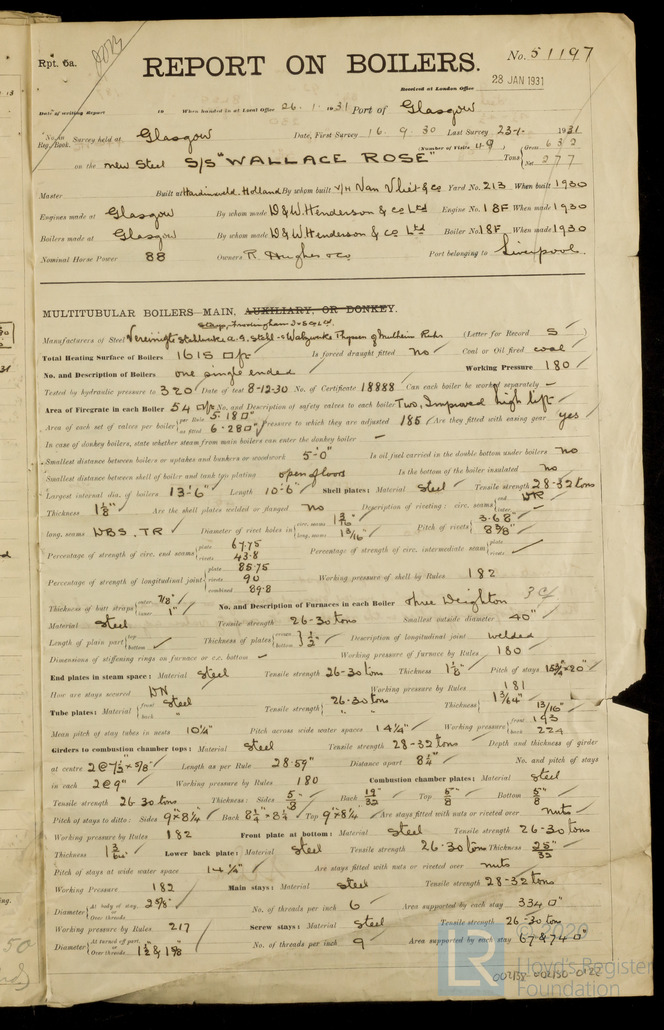 Rpt. 6a.
REPORT ON BOILERS.
No. 51197
Received at London Office 28 JAN 1931
Date of writing Report 19 When handed in at Local Office 26.1.1931 Port of Glasgow
No. in Reg. Book. Survey held at Glasgow Date, First Survey 16.9.30 Last Survey 23-1- 1931
on the New Steel S/S "WALLACE ROSE" (Number of Visits 49) Tons { Gross 632 Net 277
Master Built at Hardinxveld. Holland By whom built V/H Van Vliet & Co. Yard No. 213 When built 1930
Engines made at Glasgow By whom made D & W. Henderson & Co Ltd Engine No. 18F When made 1930
Boilers made at Glasgow By whom made D & W. Henderson & Co Ltd Boiler No. 18F When made 1930
Nominal Horse Power 88 Owners R. Hughes & Co Port belonging to Liverpool.
MULTITUBULAR BOILERS—MAIN, AUXILIARY, OR DONKEY.
Manufacturers of Steel Vereinigte Stahlwerke A.G. Stahl-u Walzwerke Thyssen Mulheim Ruhr (Letter for Record S)
Total Heating Surface of Boilers 1615 □ft Is forced draught fitted No Coal or Oil fired coal
No. and Description of Boilers one single ended Working Pressure 180
Tested by hydraulic pressure to 320 Date of test 8-12-30 No. of Certificate 18888 Can each boiler be worked separately —
Area of Firegrate in each Boiler 54 □ft No. and Description of safety valves to each boiler Two, Improved high lift
Area of each set of valves per boiler { per Rule 5.18□" as fitted 6.28□" Pressure to which they are adjusted 185 Are they fitted with easing gear yes
In case of donkey boilers, state whether steam from main boilers can enter the donkey boiler —
Smallest distance between boilers or uptakes and bunkers or woodwork 5'-0" Is oil fuel carried in the double bottom under boilers No
Smallest distance between shell of boiler and tank top plating open floors Is the bottom of the boiler insulated No
Largest internal dia. of boilers 13'-6" Length 10'-6" Shell plates: Material Steel Tensile strength 28-32 tons
Thickness 1 1/8" Are the shell plates welded or flanged No Description of riveting: circ. seams { end DR inter.
long. seams DBS. TR Diameter of rivet holes in { circ. seams 1 3/16" long. seams 1 3/16" Pitch of rivets { 3.68" 8 3/8"
Percentage of strength of circ. end seams { plate 67.75 rivets 43.8 Percentage of strength of circ. intermediate seam { plate rivets
Percentage of strength of longitudinal joint { plate 85.75 rivets 90 combined 89.8 Working pressure of shell by Rules 182
Thickness of butt straps { outer 7/8" inner 1" No. and Description of Furnaces in each Boiler Three Deighton
Material Steel Tensile strength 26-30 tons Smallest outside diameter 40"
Length of plain part { top bottom Thickness of plates { crown bottom } 1/2" Description of longitudinal joint welded
Dimensions of stiffening rings on furnace or c.c. bottom — Working pressure of furnace by Rules 180
End plates in steam space: Material Steel Tensile strength 26-30 tons Thickness 1 1/8" Pitch of stays
How are stays secured DN Working pressure by Rules 181
Tube plates: Material { front Steel back " Tensile strength { 26-30 tons " " Thickness { 1 3/64" 13/16"
Mean pitch of stay tubes in nests 10 1/4" Pitch across wide water spaces 14 1/4" Working pressure { front 193 back 224
Girders to combustion chamber tops: Material Steel Tensile strength 28-32 tons Depth and thickness of girder
at centre 2 @ 7 1/2" × 5/8" Length as per Rule 28.59" Distance apart 8 1/4" No. and pitch of stays
in each 2 @ 9" Working pressure by Rules 180 Combustion chamber plates: Material Steel
Tensile strength 26-30 tons Thickness: Sides 5/8" Back 19/32" Top 5/8" Bottom 5/8"
Pitch of stays to ditto: Sides 9" × 8 1/4" Back 8 1/4" × 8 1/4" Top 9" × 8 1/4" Are stays fitted with nuts or riveted over nuts
Working pressure by Rules 182 Front plate at bottom: Material Steel Tensile strength 26-30 tons
Thickness 1 3/64" Lower back plate: Material Steel Tensile strength 26-30 tons Thickness 25/32"
Pitch of stays at wide water space 14 1/4" Are stays fitted with nuts or riveted over nuts
Working Pressure 182 Main stays: Material Steel Tensile strength 28-32 tons
Diameter { At body of stay, or Over threads 2 5/8" No. of threads per inch 6 Area supported by each stay 334□"
Working pressure by Rules 217 Screw stays: Material Steel Tensile strength 26-30 tons
Diameter { At turned off part, or Over threads 1 1/2" & 1 5/8" No. of threads per inch 9 Area supported by each stay 67 & 74□"
© 2020
LR
Lloyd's Register
Foundation